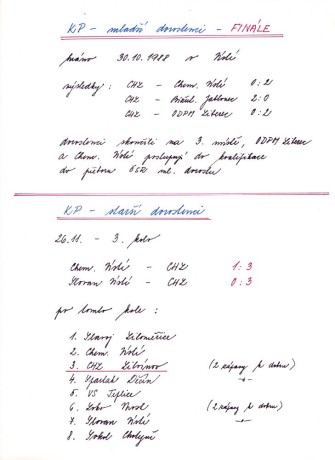 KP - mladší dorostenci - FINÁLE
hráno 30.10.1988 v Ústí
výsledky : CHZ - Chem. Ústí 0:2
CHZ - Bižut. Jablonec 2:0
CHZ - ODPM Liberec 0:2
dorostenci skončili na 3. místě, ODPM Liberec
a Chem. Ústí postupují do kvalifikace
do přeboru ČSR ml. dorostu
KP - starší dorostenci
26.11. - 3. kolo
Chem. Ústí - CHZ 1:3
Slovan Ústí - CHZ 0:3
po tomto kole :
1. Slavoj Litoměřice
2. Chem. Ústí
3. CHZ Litvínov (2 zápasy k dobru)
4. Spartak Děčín
5. VŠ Teplice
6. Most (2 zápasy k dobru)
7. Slovan Ústí
8. Sokol